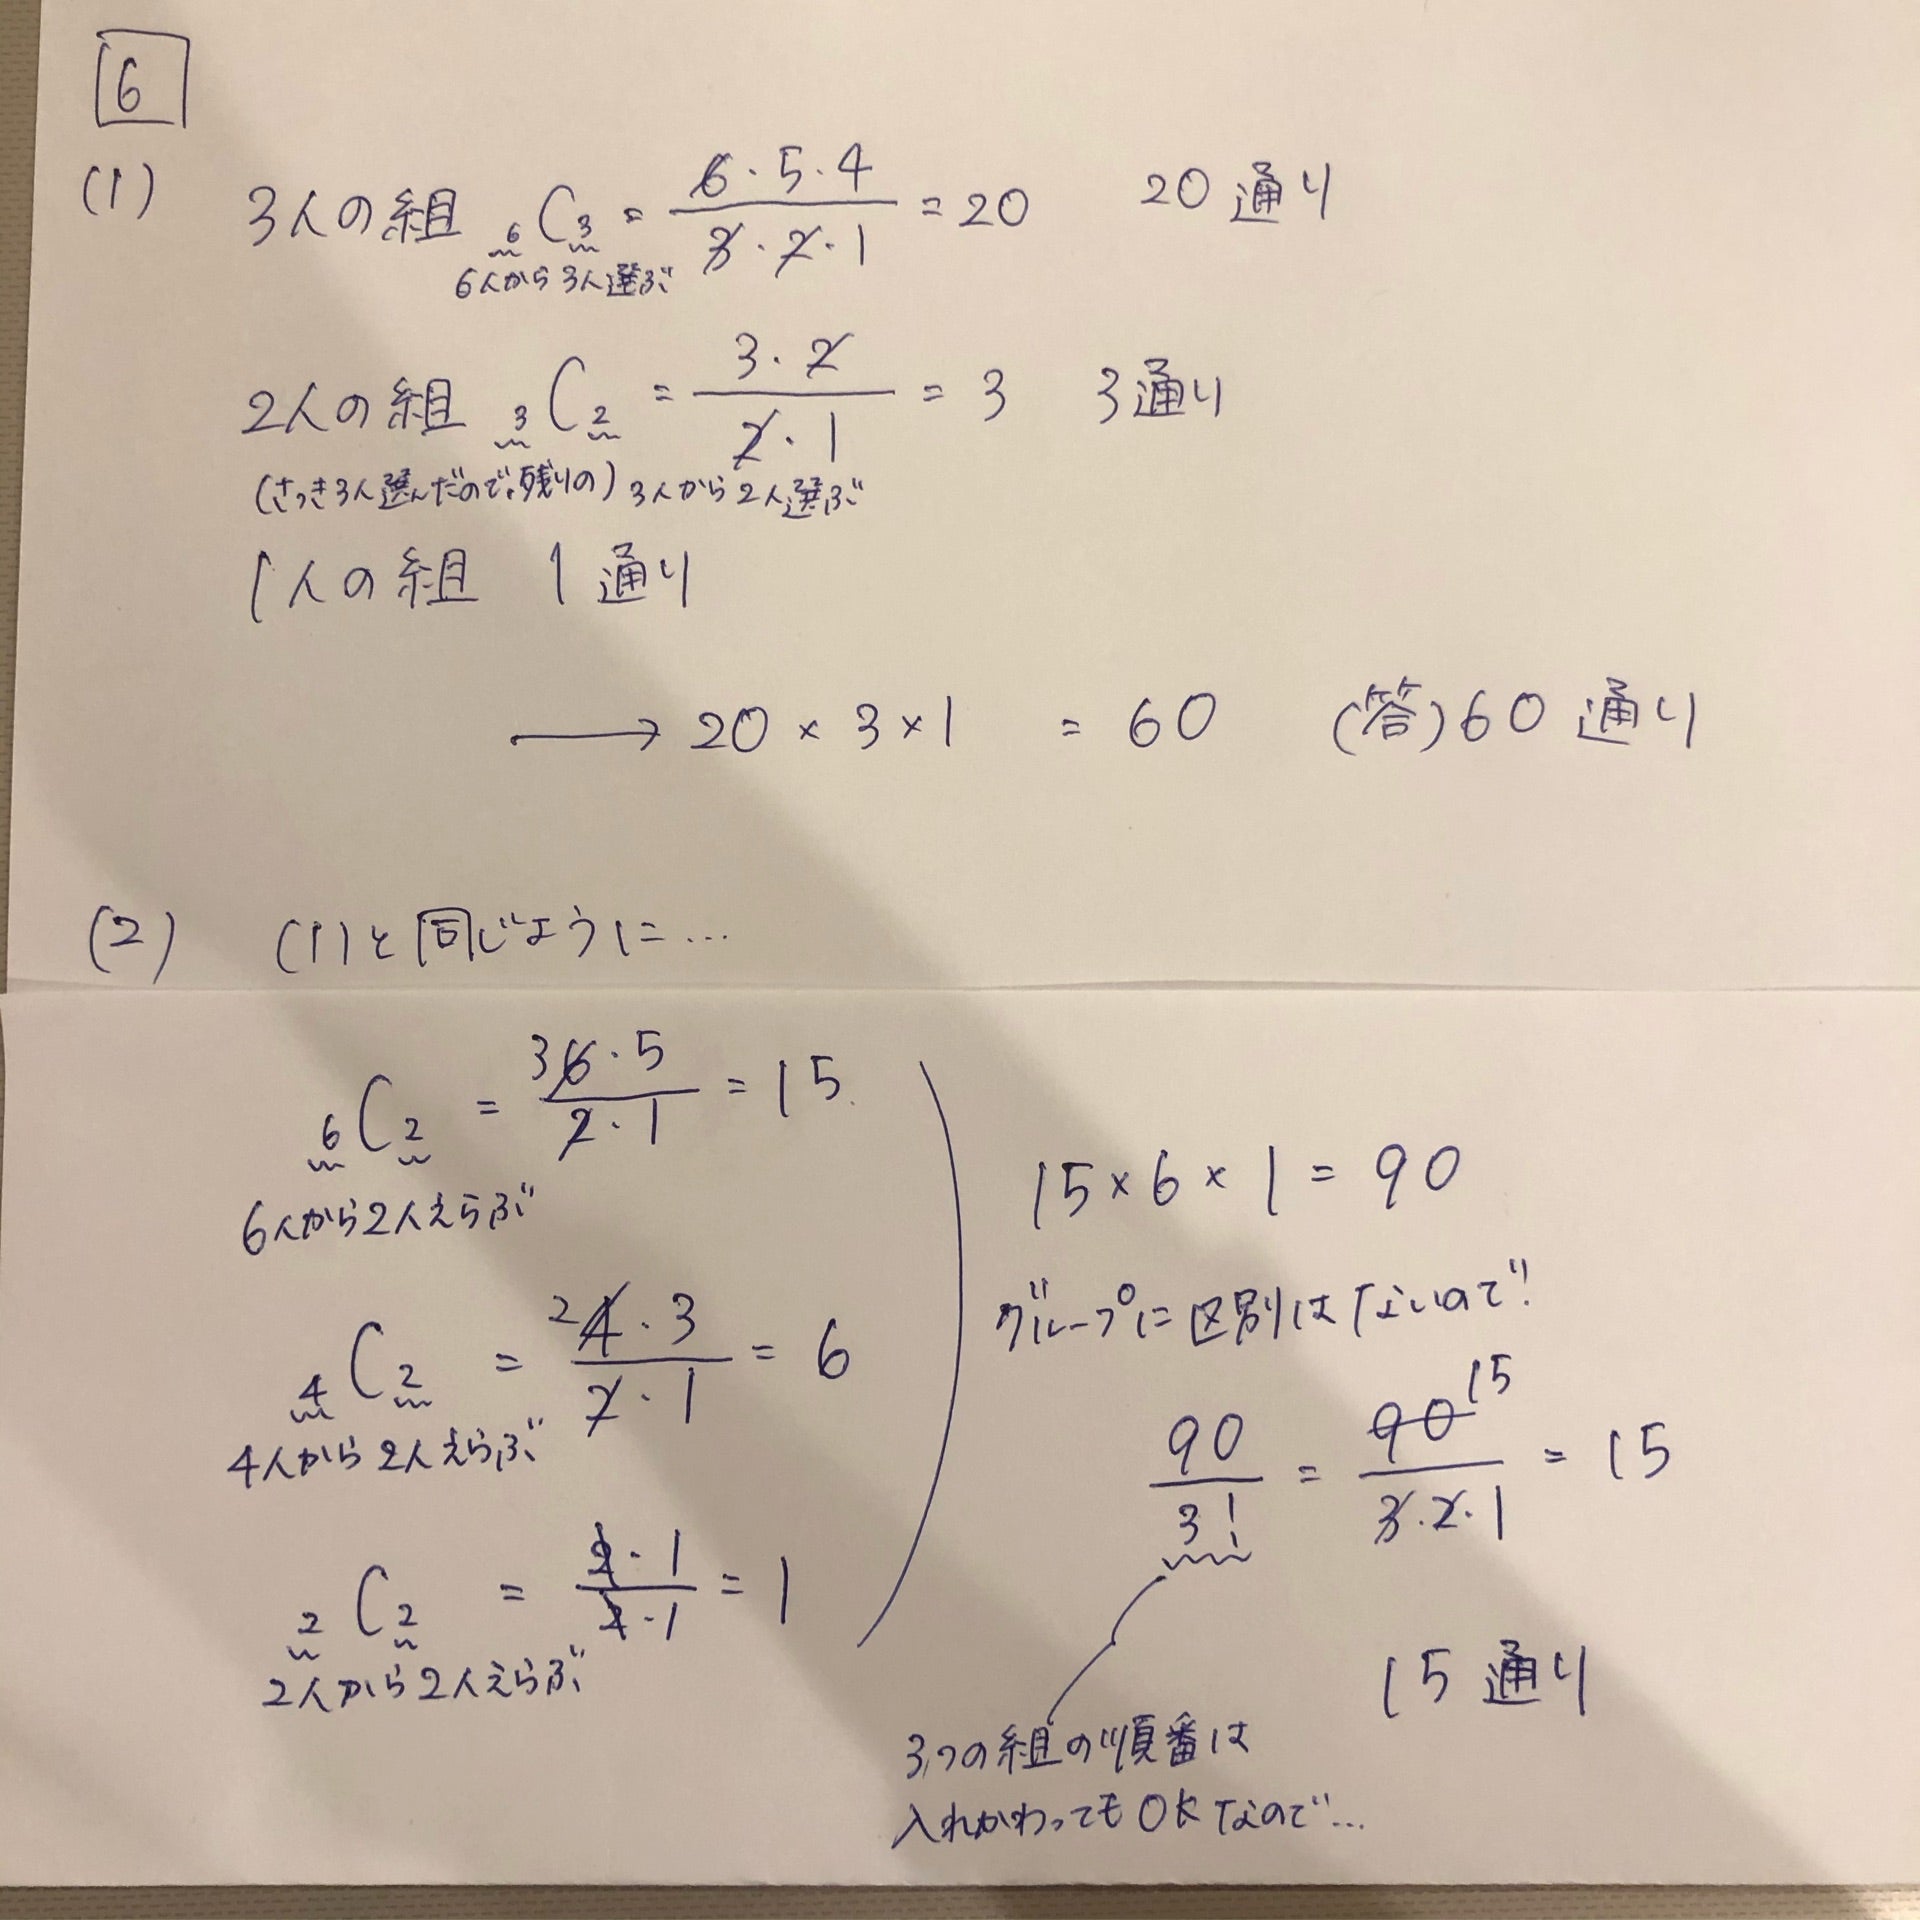 6
(1) 3人の組 ₆C₃ = 6・5・4 / 3・2・1 = 20 20通り
6人から3人選ぶ
2人の組 ₃C₂ = 3・2 / 2・1 = 3 3通り
(さっき3人選んだので、残りの) 3人から2人選ぶ
1人の組 1通り
→ 20 × 3 × 1 = 60 (答) 60通り
(2) (1)と同じように…
₆C₂ = 3 6・5 / 2・1 = 15
6人から2人えらぶ
₄C₂ = 2 4・3 / 2・1 = 6
4人から2人えらぶ
₂C₂ = 2・1 / 2・1 = 1
2人から2人えらぶ
15 × 6 × 1 = 90
グループに区別はないので!
90 / 3! = 90 15 / 3・2・1 = 15
15通り
3つの組の順番は
入れかわってもOKなので…